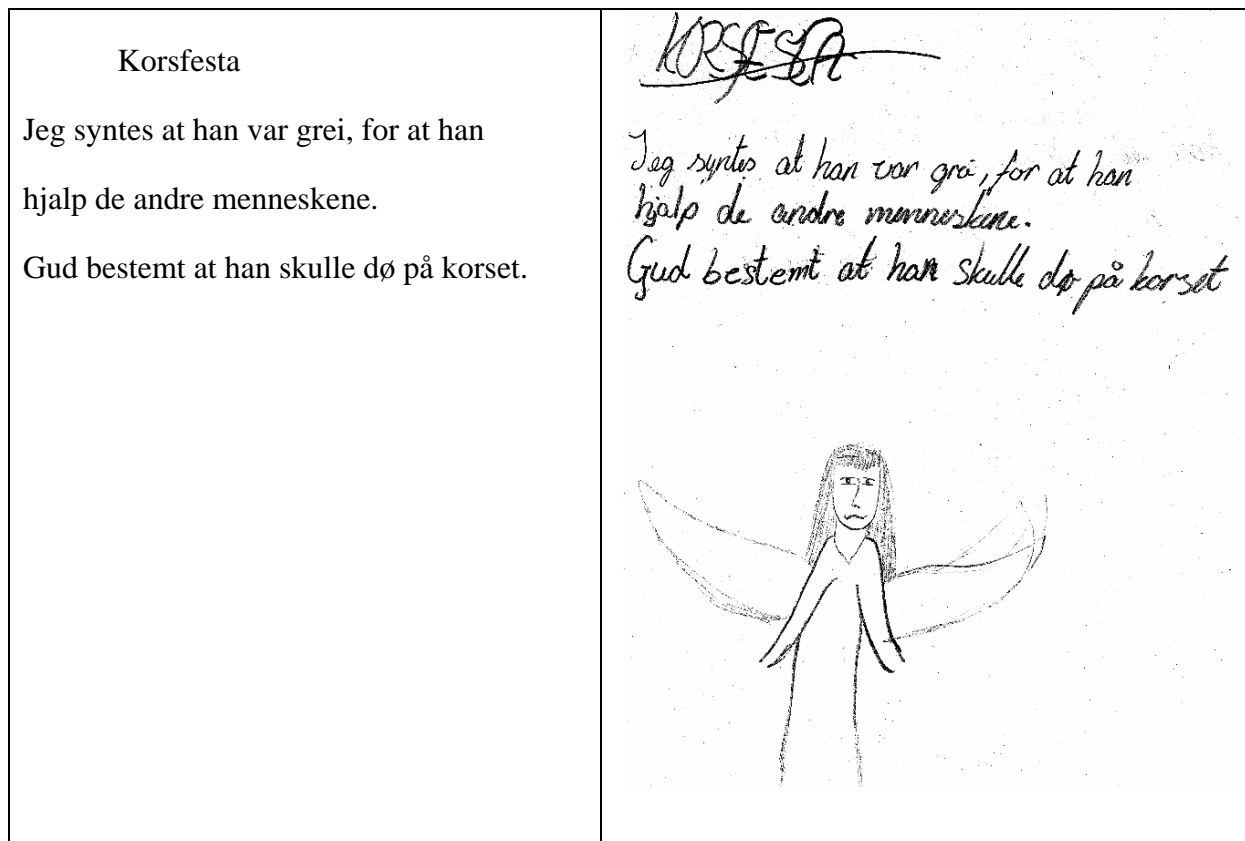 Korsfesta
Jeg syntes at han var grei, for at han
hjalp de andre menneskene.
Gud bestemt at han skulle dø på korset.
KORSFESTA
Jeg syntes at han var grei, for at han
hjalp de andre menneskene.
Gud bestemt at han skulle dø på korset